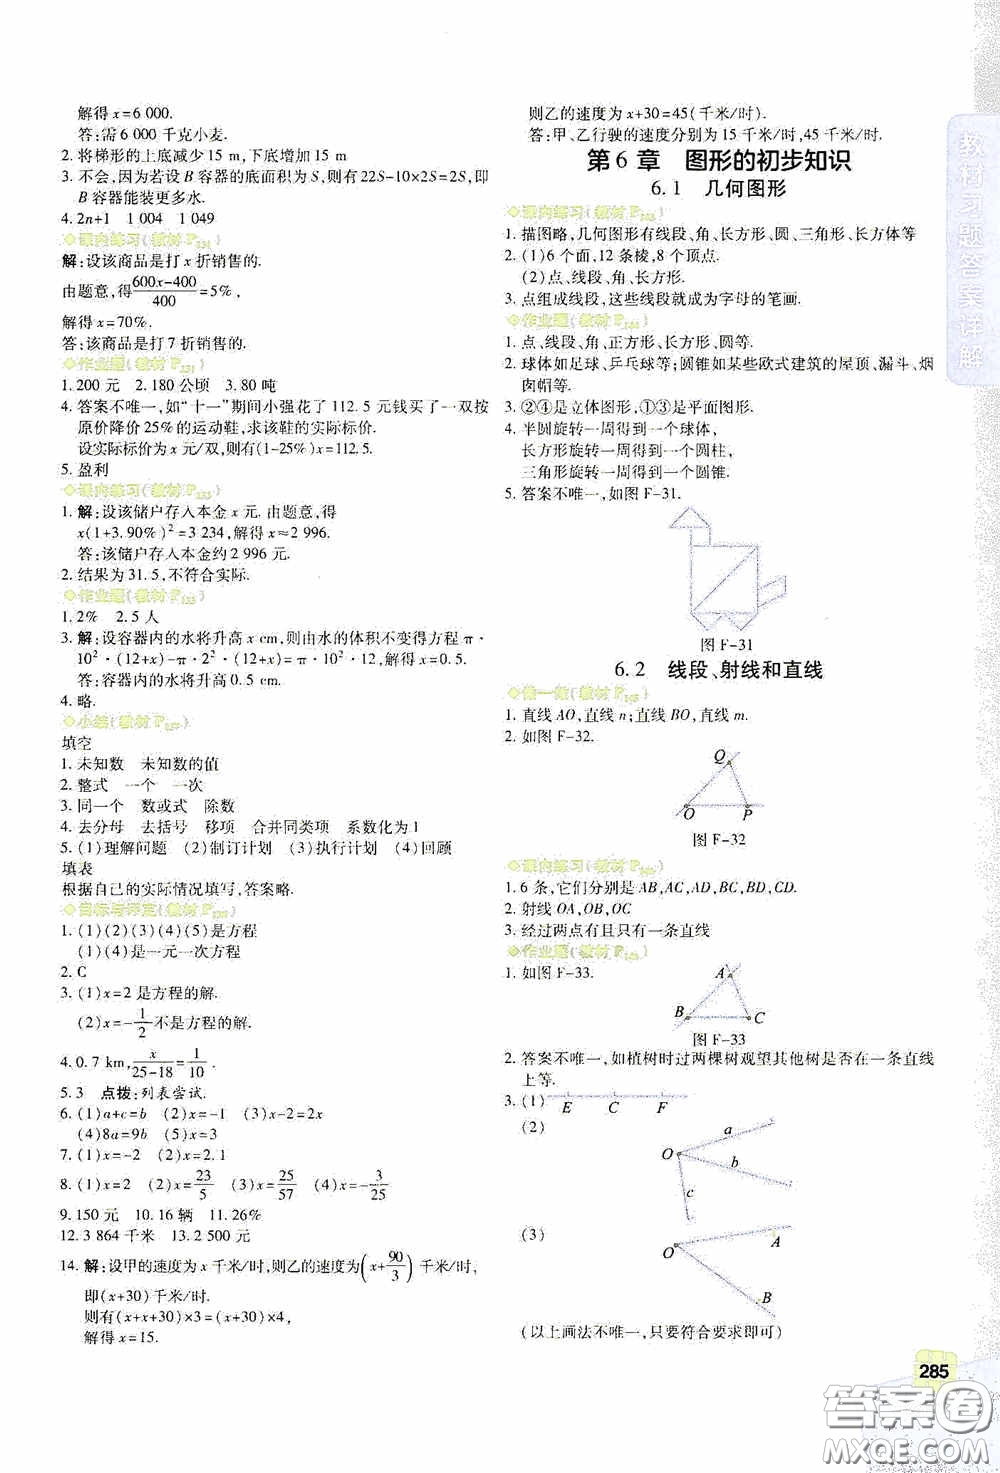 解得 x=6 000.
答:需 6 000 千克小麦.
2. 将梯形的上底减少 15 m,下底增加 15 m.
3. 不会,因为若设 B 容器的底面积为 S,则有 22S-10×2S=2S,即
B 容器能装更多水.
4. 2n+1 1 004 1 049
课内练习(教材 P₁₃₁)
解:设该商品是打 x 折销售的.
由题意,得(600x-400)/400=5%,
解得 x=70%.
答:该商品是打 7 折销售的.
作业题(教材 P₁₃₁)
1. 200 元 2. 180 公顷 3. 80 吨
4. 答案不唯一,如“十一”期间小强花了 112.5 元钱买了一双按
原价降价 25%的运动鞋,求该鞋的实际标价.
设实际标价为 x 元/双,则有(1-25%)x=112.5.
5. 盈利
课内练习(教材 P₁₃₃)
1. 解:设该储户存入本金 x 元. 由题意,得
x(1+3.90%)²=3 234,解得 x≈2 996.
答:该储户存入本金约 2 996 元.
2. 结果为 31.5,不符合实际.
作业题(教材 P₁₃₃)
1. 2% 2. 5 人
3. 解:设容器内的水将升高 x cm,则由水的体积不变得方程 π·
10²·(12+x)-π·2²·(12+x)=π·10²·12,解得 x=0.5.
答:容器内的水将升高 0.5 cm.
4. 略.
小结(教材
填空
1. 未知数 未知数的值
2. 整式 一个 一次
3. 同一个 数或式 除数
4. 去分母 去括号 移项 合并同类项 系数化为 1
5. (1)理解问题 (2)制订计划 (3)执行计划 (4)回顾
填表
根据自己的实际情况填写,答案略.
目标与评定(教材
1. (1)(2)(3)(4)(5)是方程
(1)(4)是一元一次方程
2. C
3. (1)x=2 是方程的解.
(2)x=-1/2 不是方程的解.
4. 0.7 km, x/(25-18)=1/10.
5. 3 点拨:列表尝试.
6. (1)a+c=b (2)x=-1 (3)x-2=2x
(4)8a=9b (5)x=3
7. (1)x=-2 (2)x=2.1
8. (1)x=2 (2)x=23/5 (3)x=25/57 (4)x=-3/25
9. 150 元 10. 16 辆 11. 26%
12. 3 864 千米 13. 2 500 元
14. 解:设甲的速度为 x 千米/时,则乙的速度为(x+90/3)千米/时,
即(x+30)千米/时.
则有(x+x+30)×3=(x+30)×4,
解得 x=15.
则乙的速度为 x+30=45(千米/时).
答:甲、乙行驶的速度分别为 15 千米/时,45 千米/时.
第 6 章 图形的初步知识
6.1 几何图形
课内练习(教材
1. 描图略,几何图形有线段、角、长方形、圆、三角形、长方体等
2. (1)6 个面,12 条棱,8 个顶点.
(2)点、线段、角、长方形.
3. 点组成线段,这些线段就成为字母的笔画.
作业题(教材
1. 点、线段、角、正方形、长方形、圆等.
2. 球体如足球、乒乓球等;圆锥如某些欧式建筑的屋顶、漏斗、烟
囱帽等.
3. ②④是立体图形,①③是平面图形.
4. 半圆旋转一周得到一个球体,
长方形旋转一周得到一个圆柱,
三角形旋转一周得到一个圆锥.
5. 答案不唯一,如图 F-31.
图 F-31
6.2 线段、射线和直线
做一做(教材
1. 直线 AO,直线 n;直线 BO,直线 m.
2. 如图 F-32.
Q
O P
图 F-32
课内练习(教材
1. 6 条,它们分别是 AB,AC,AD,BC,BD,CD.
2. 射线 OA,OB,OC
3. 经过两点有且只有一条直线
作业题(教材
1. 如图 F-33.
A
B C
图 F-33
2. 答案不唯一,如植树时过两棵树观望其他树是否在一条直线
上等.
3. (1) E C F
(2)
O a b c
(3)
O A B
(以上画法不唯一,只要符合要求即可)
教材习题答案详解
285
答案圈
MXQE.COM